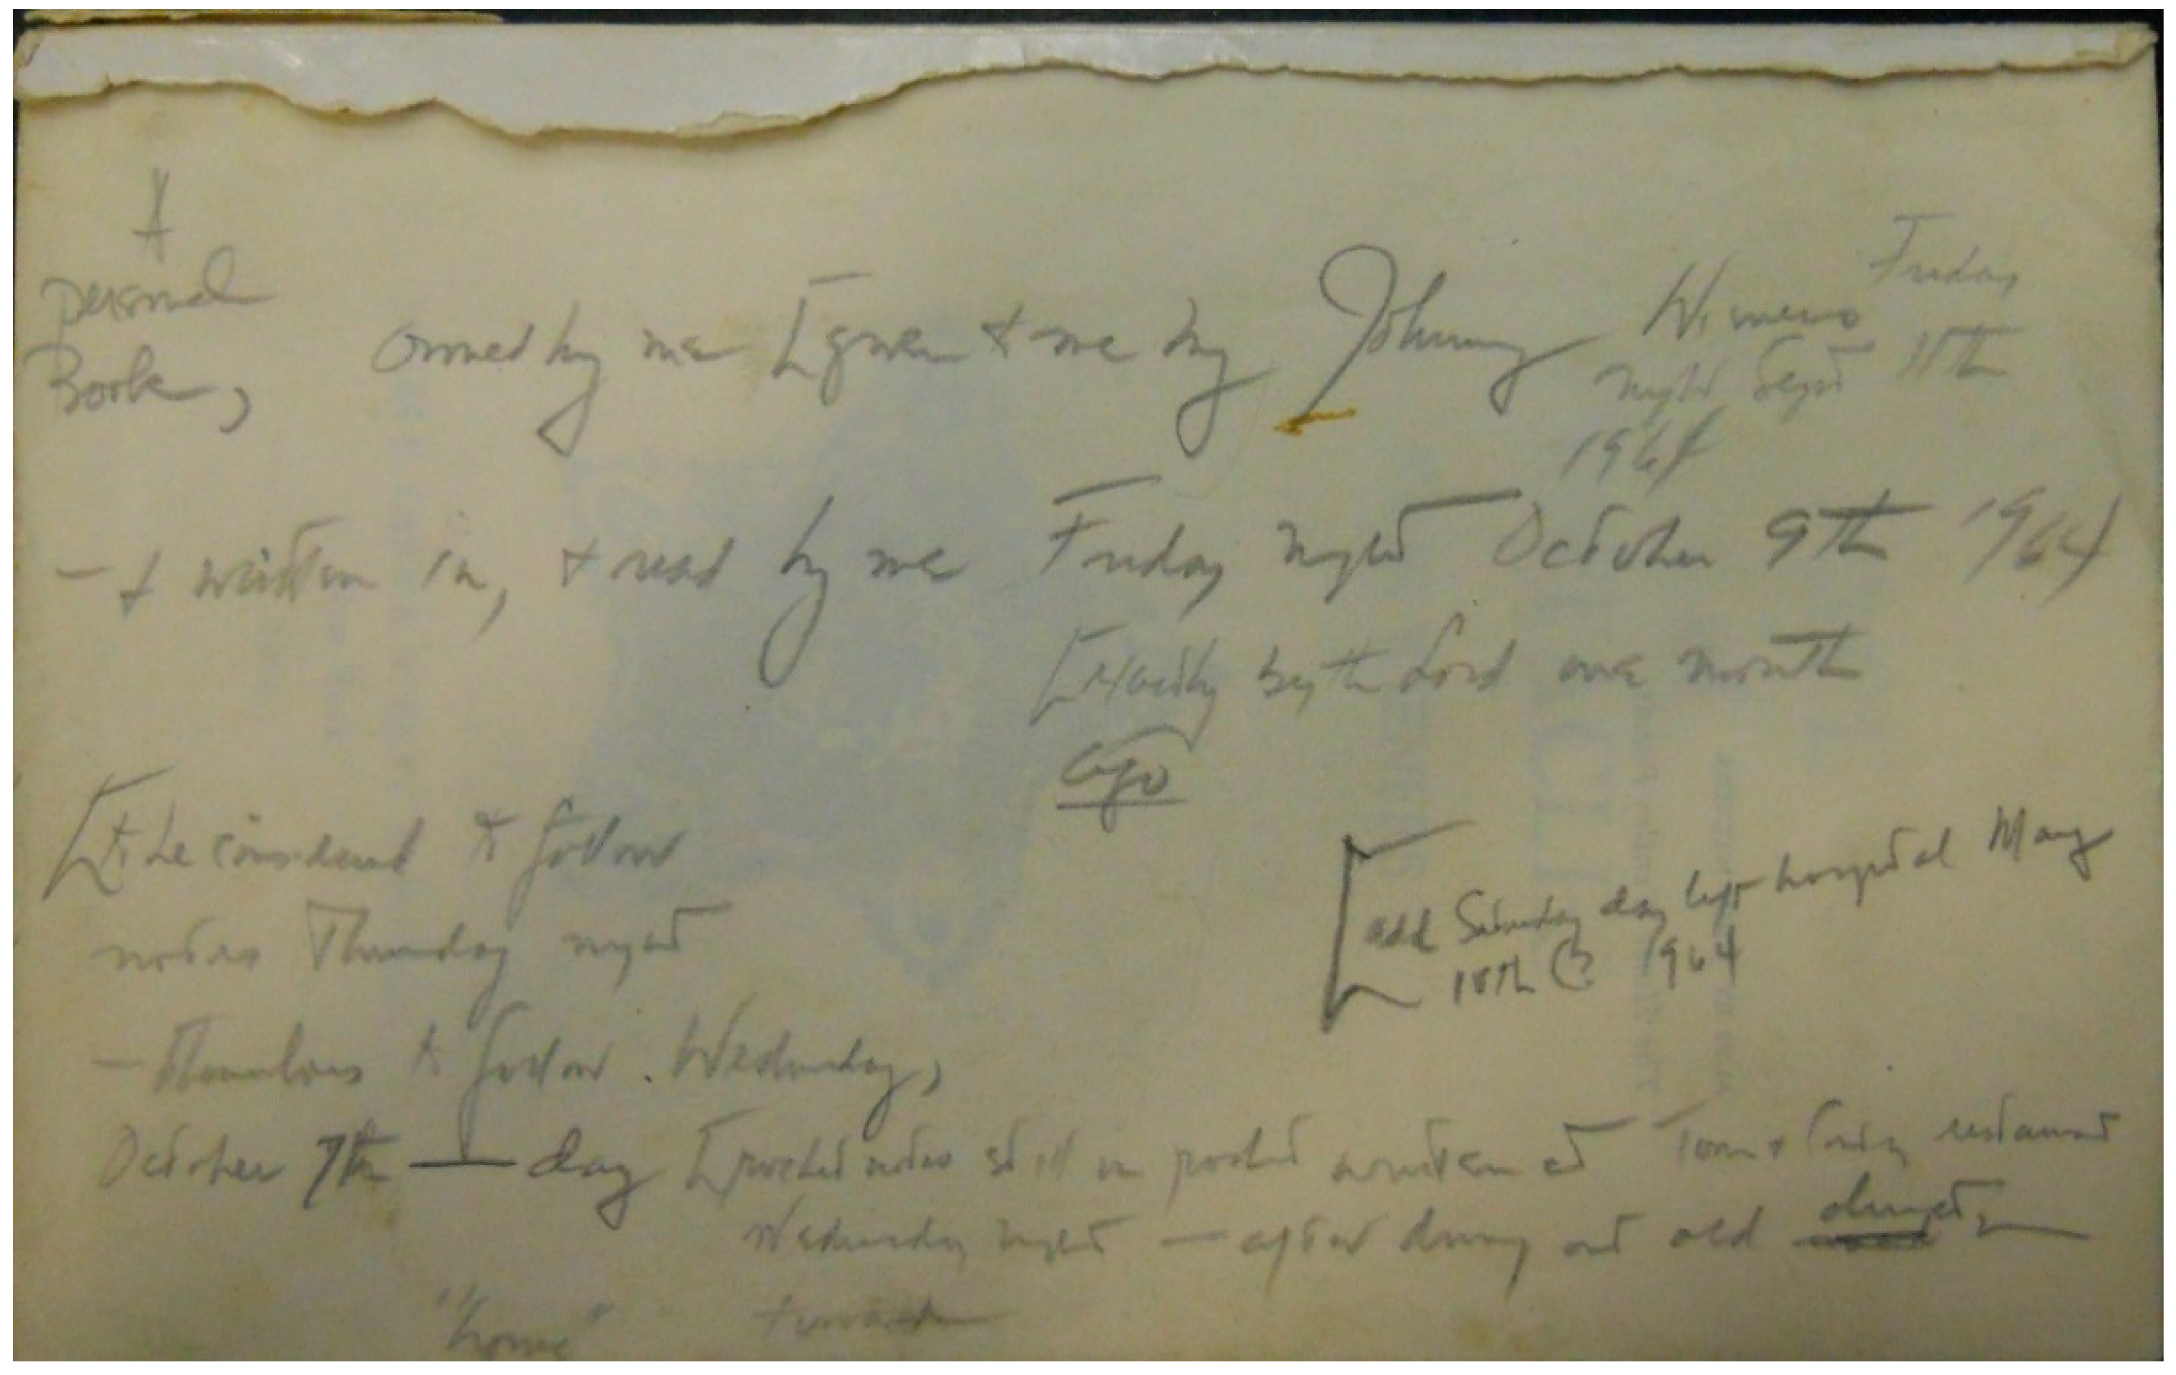 A
personal
Book,
owned by me [given to me by Johnny Wieners Friday
night Sept 11th
1964
- & written in, & read by me Friday night October 9th 1964
[exactly by the Lord one month
ago
[to be considered & follow
notes Thursday night
- to follow. Wednesday,
October 7th — day [pocket notes still in pocket written at restaurant
Wednesday night — after driving out old
"home"
[add Saturday day left hospital May
1964